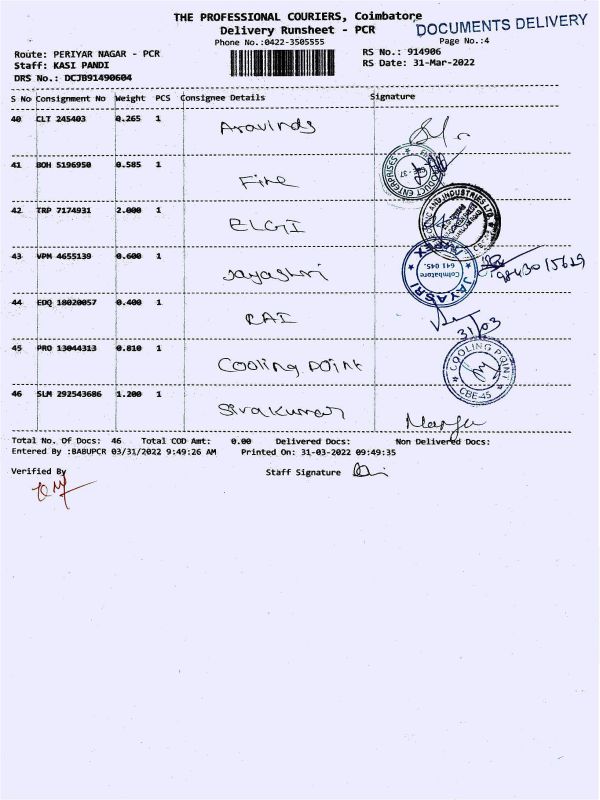 THE PROFESSIONAL COURIERS, Coimbatore
DOCUMENTS DELIVERY
Delivery Runsheet - PCR
Phone No.:0422-3505555
Page No.:4
Route: PERIYAR NAGAR - PCR
RS No.: 914906
Staff: KASI PANDI
RS Date: 31-Mar-2022
DRS No.: DCJB91490604
S No Consignment No Weight PCS Consignee Details Signature
40 CLT 245403 0.265 1 Aravinds
41 BOH 5196950 0.585 1 Fine
42 TRP 7174931 2.000 1 ELGI
43 VPM 4655139 0.600 1 Jayashri
JAYASRI
Coimbatore
641 045.
9843015629
44 EDQ 18020057 0.400 1 RAI
31/03
45 PRO 13044313 0.810 1 Cooling point
COOLING POINT
CBE-45
46 SLM 292543686 1.200 1 Sivakumar
Total No. Of Docs: 46 Total COD Amt: 0.00 Delivered Docs: Non Delivered Docs:
Entered By :BABUPCR 03/31/2022 9:49:26 AM Printed On: 31-03-2022 09:49:35
Verified By
Staff Signature